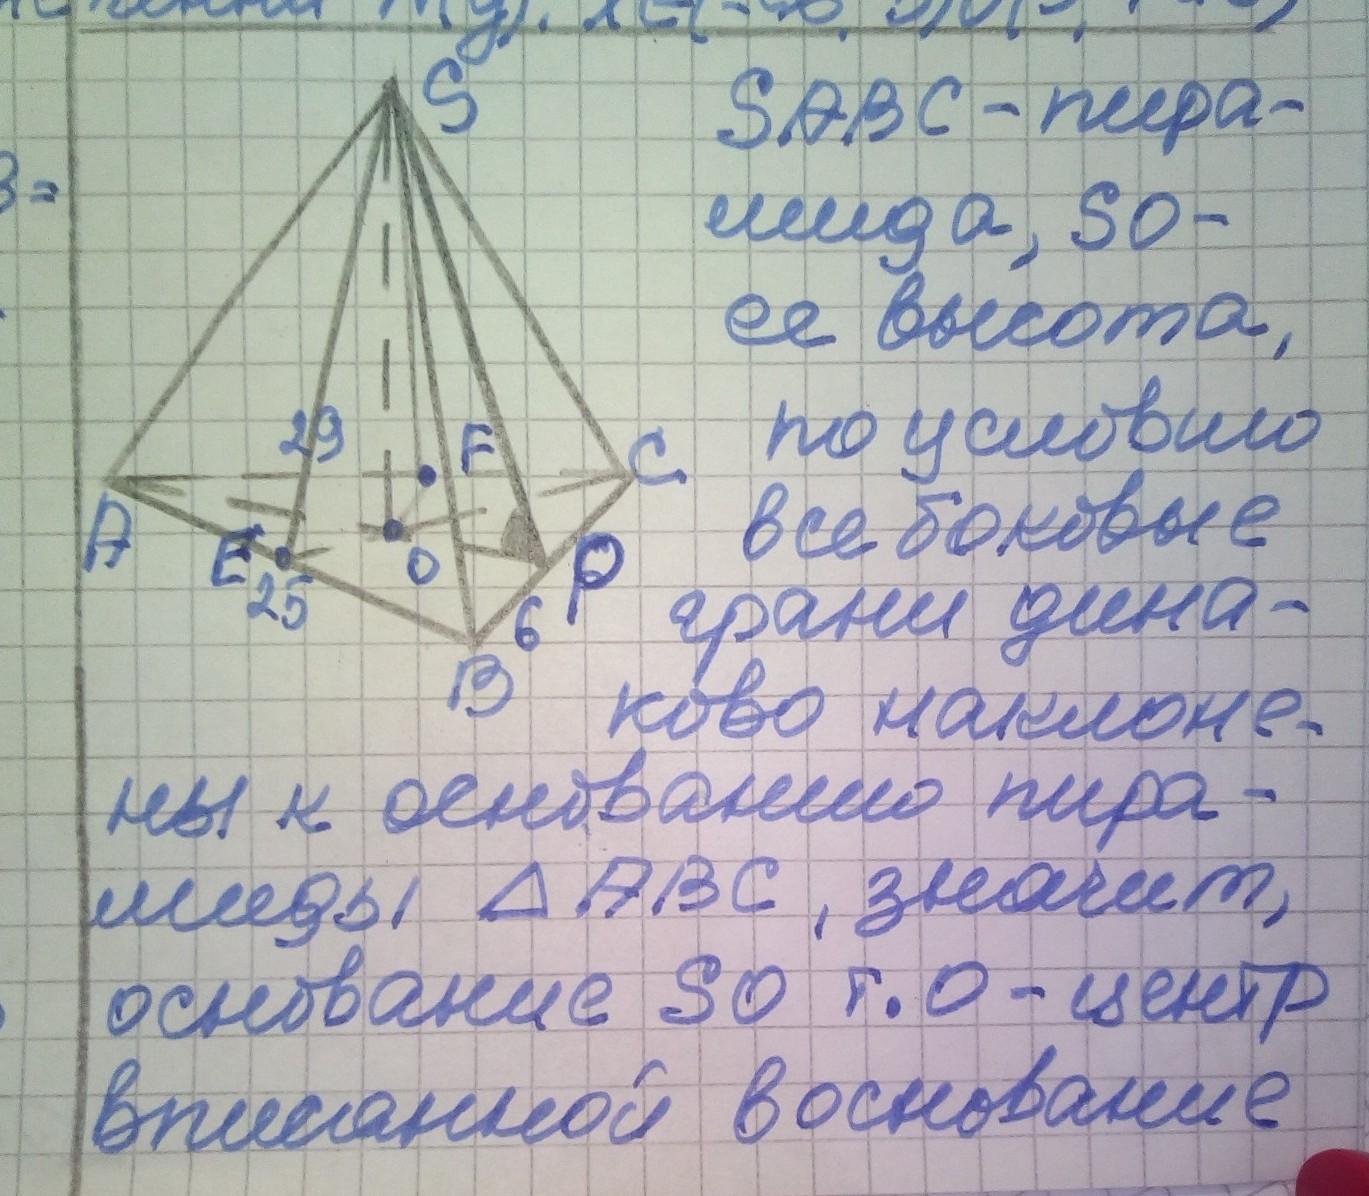 S
SABC - пира-
мида, SO -
ее высота,
29
F
C
по условию
A
E
O
P
все боковые
25
6
грани дина-
B
ково наклоне-
ны к основанию пира-
миды △ ABC, значит,
основание SO т. O - центр
вписанной в основание